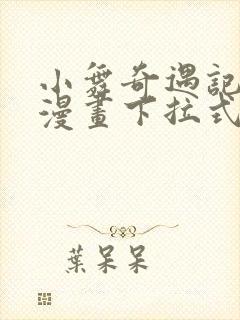 小舞奇遇記
漫畫下拉式
葉呆呆